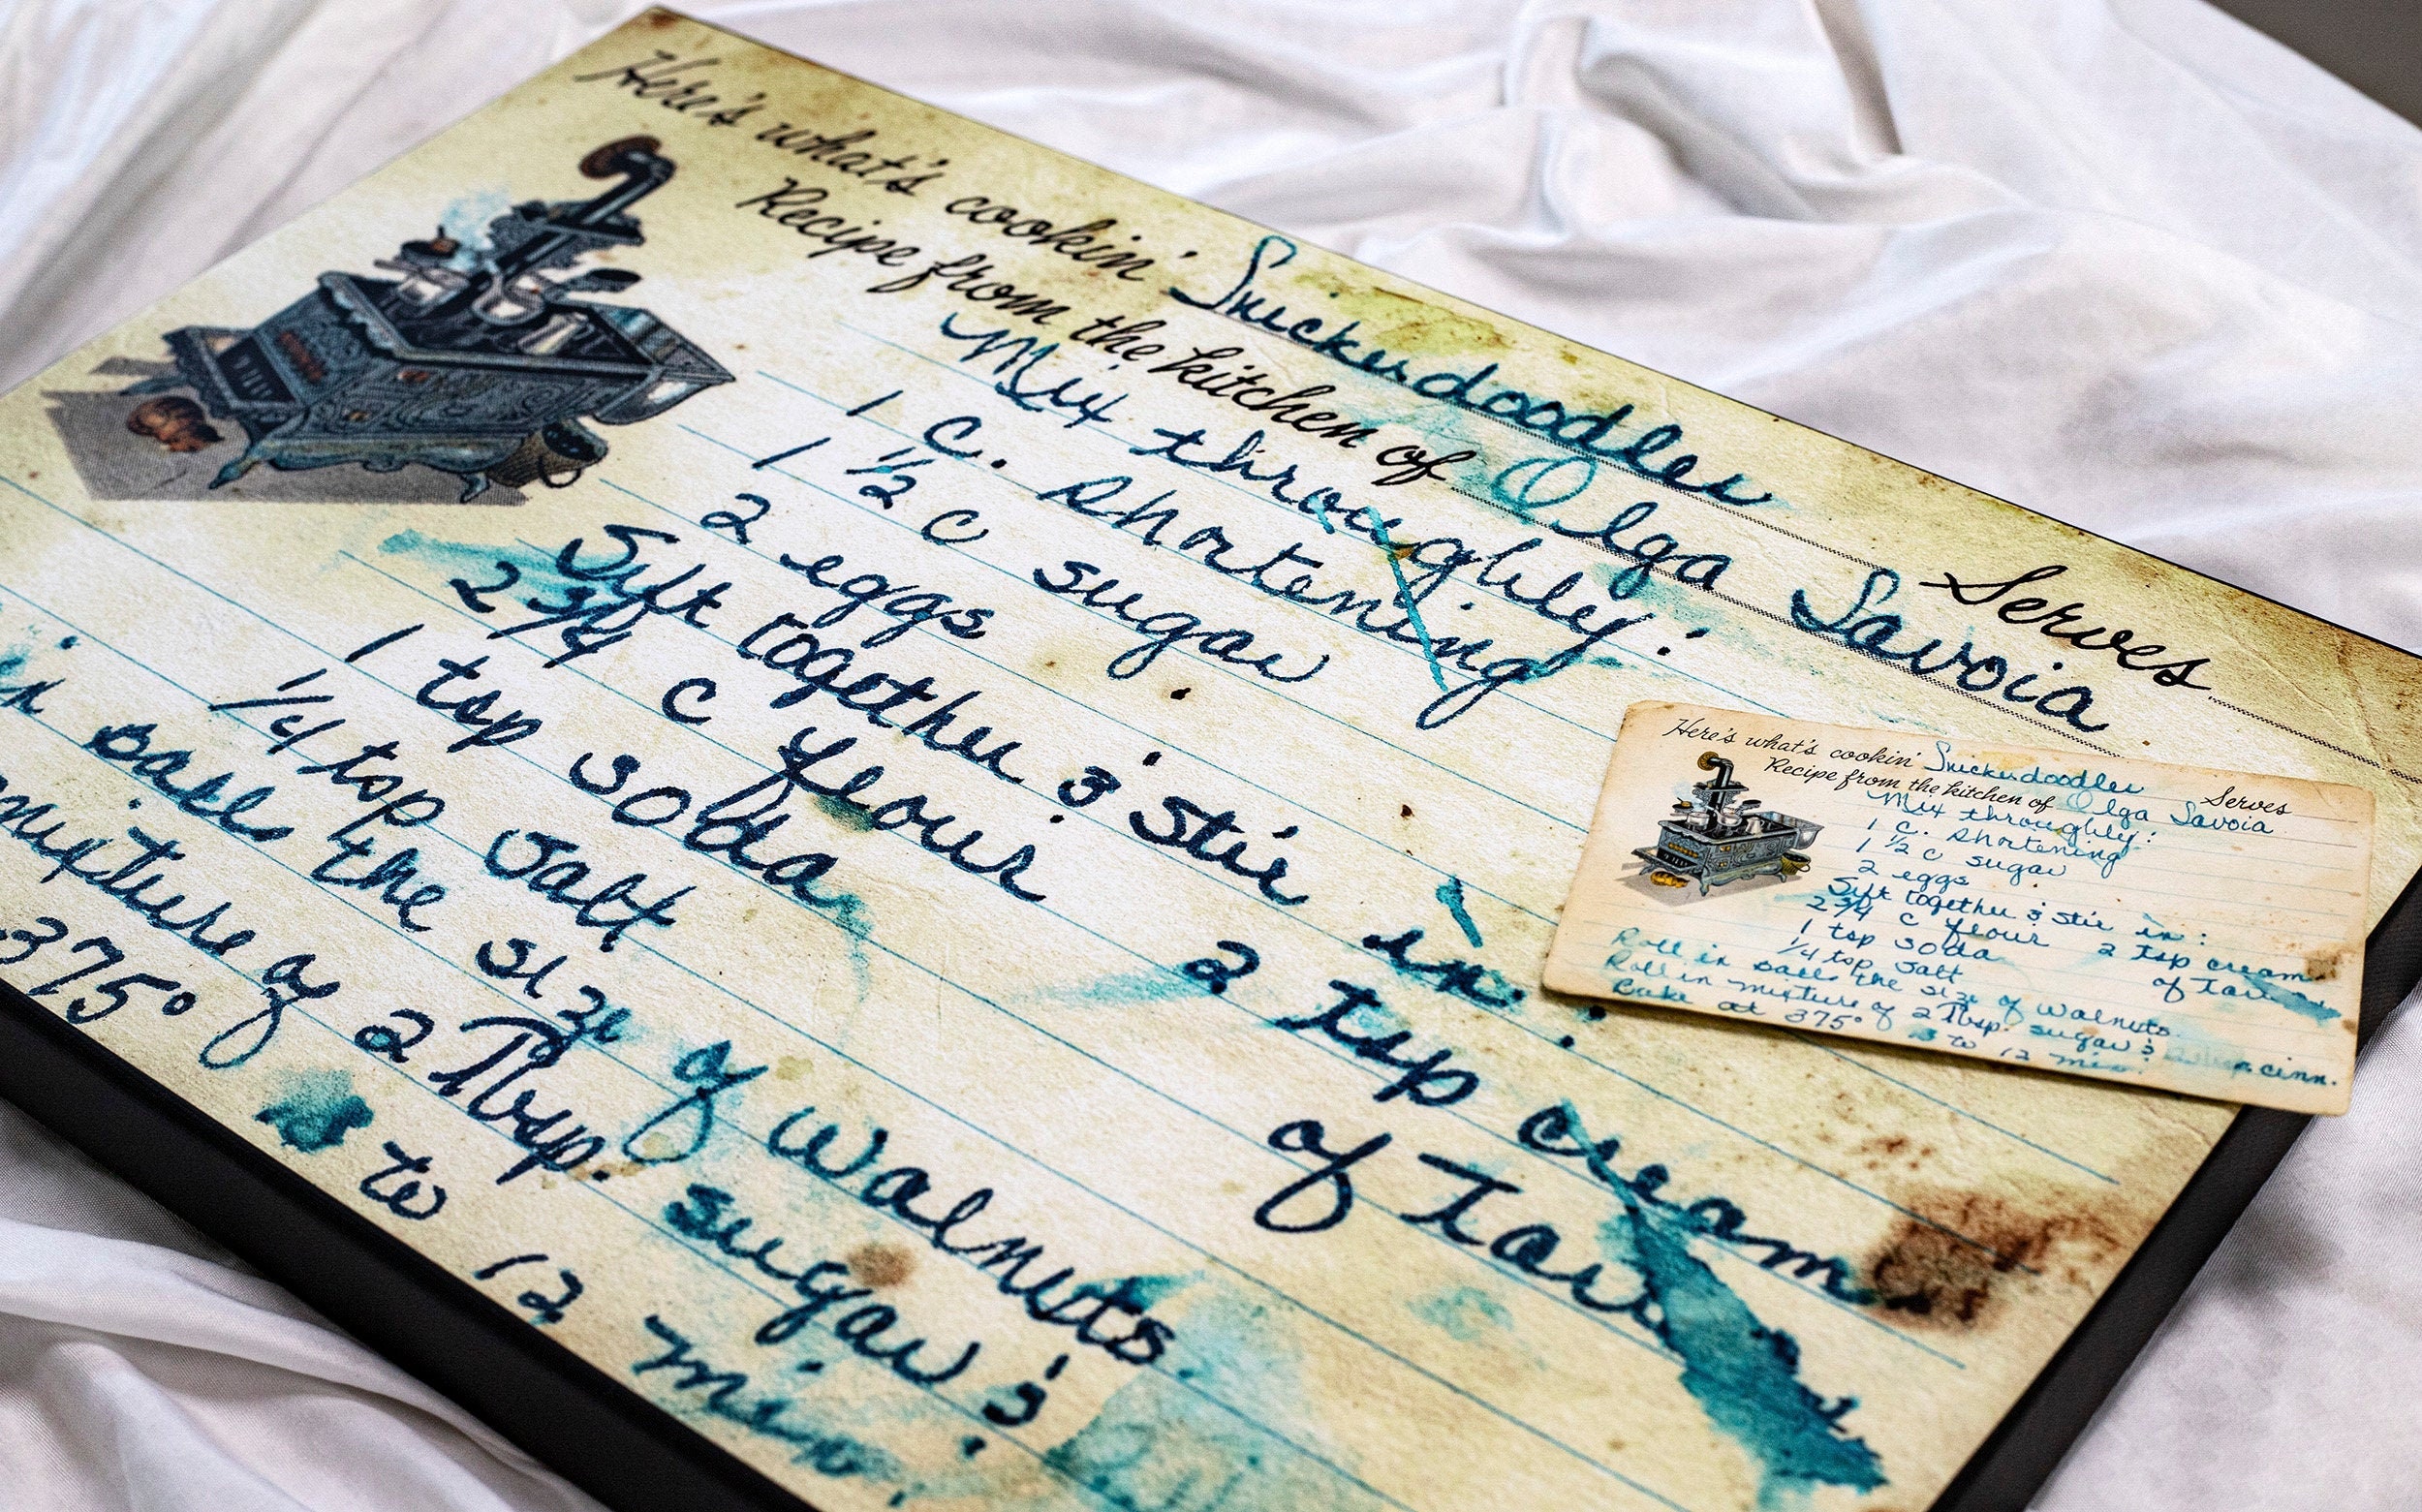 Here's what's cookin' Snickerdoodles Serves
Recipe from the kitchen of Olga Savoia
Mix throughly:
1 c. shortening
1 1/2 c sugar
2 eggs
Sift together & stir in:
2 3/4 c flour 2 tsp cream
1 tsp soda of Tar
1/4 tsp salt
in balls the size of walnuts.
mixture of 2 Tbsp. sugar &
375° to 12 min.
Here's what's cookin' Snickerdoodles Serves
Recipe from the kitchen of Olga Savoia
Mix throughly:
1 c. shortening
1 1/2 c sugar
2 eggs
Sift together & stir in:
2 3/4 c flour 2 tsp cream
1 tsp soda of Tar
1/4 tsp salt
Roll in balls the size of walnuts.
Roll in mixture of 2 Tbsp. sugar & cinn.
Bake at 375° to 12 min.